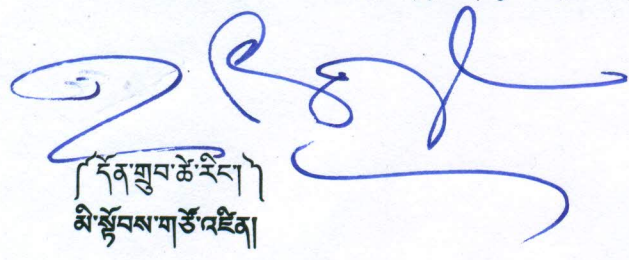 ༼དོན་གྲུབ་ཚེ་རིང་།༽
མི་སྟོབས་གཙོ་འཛིན།